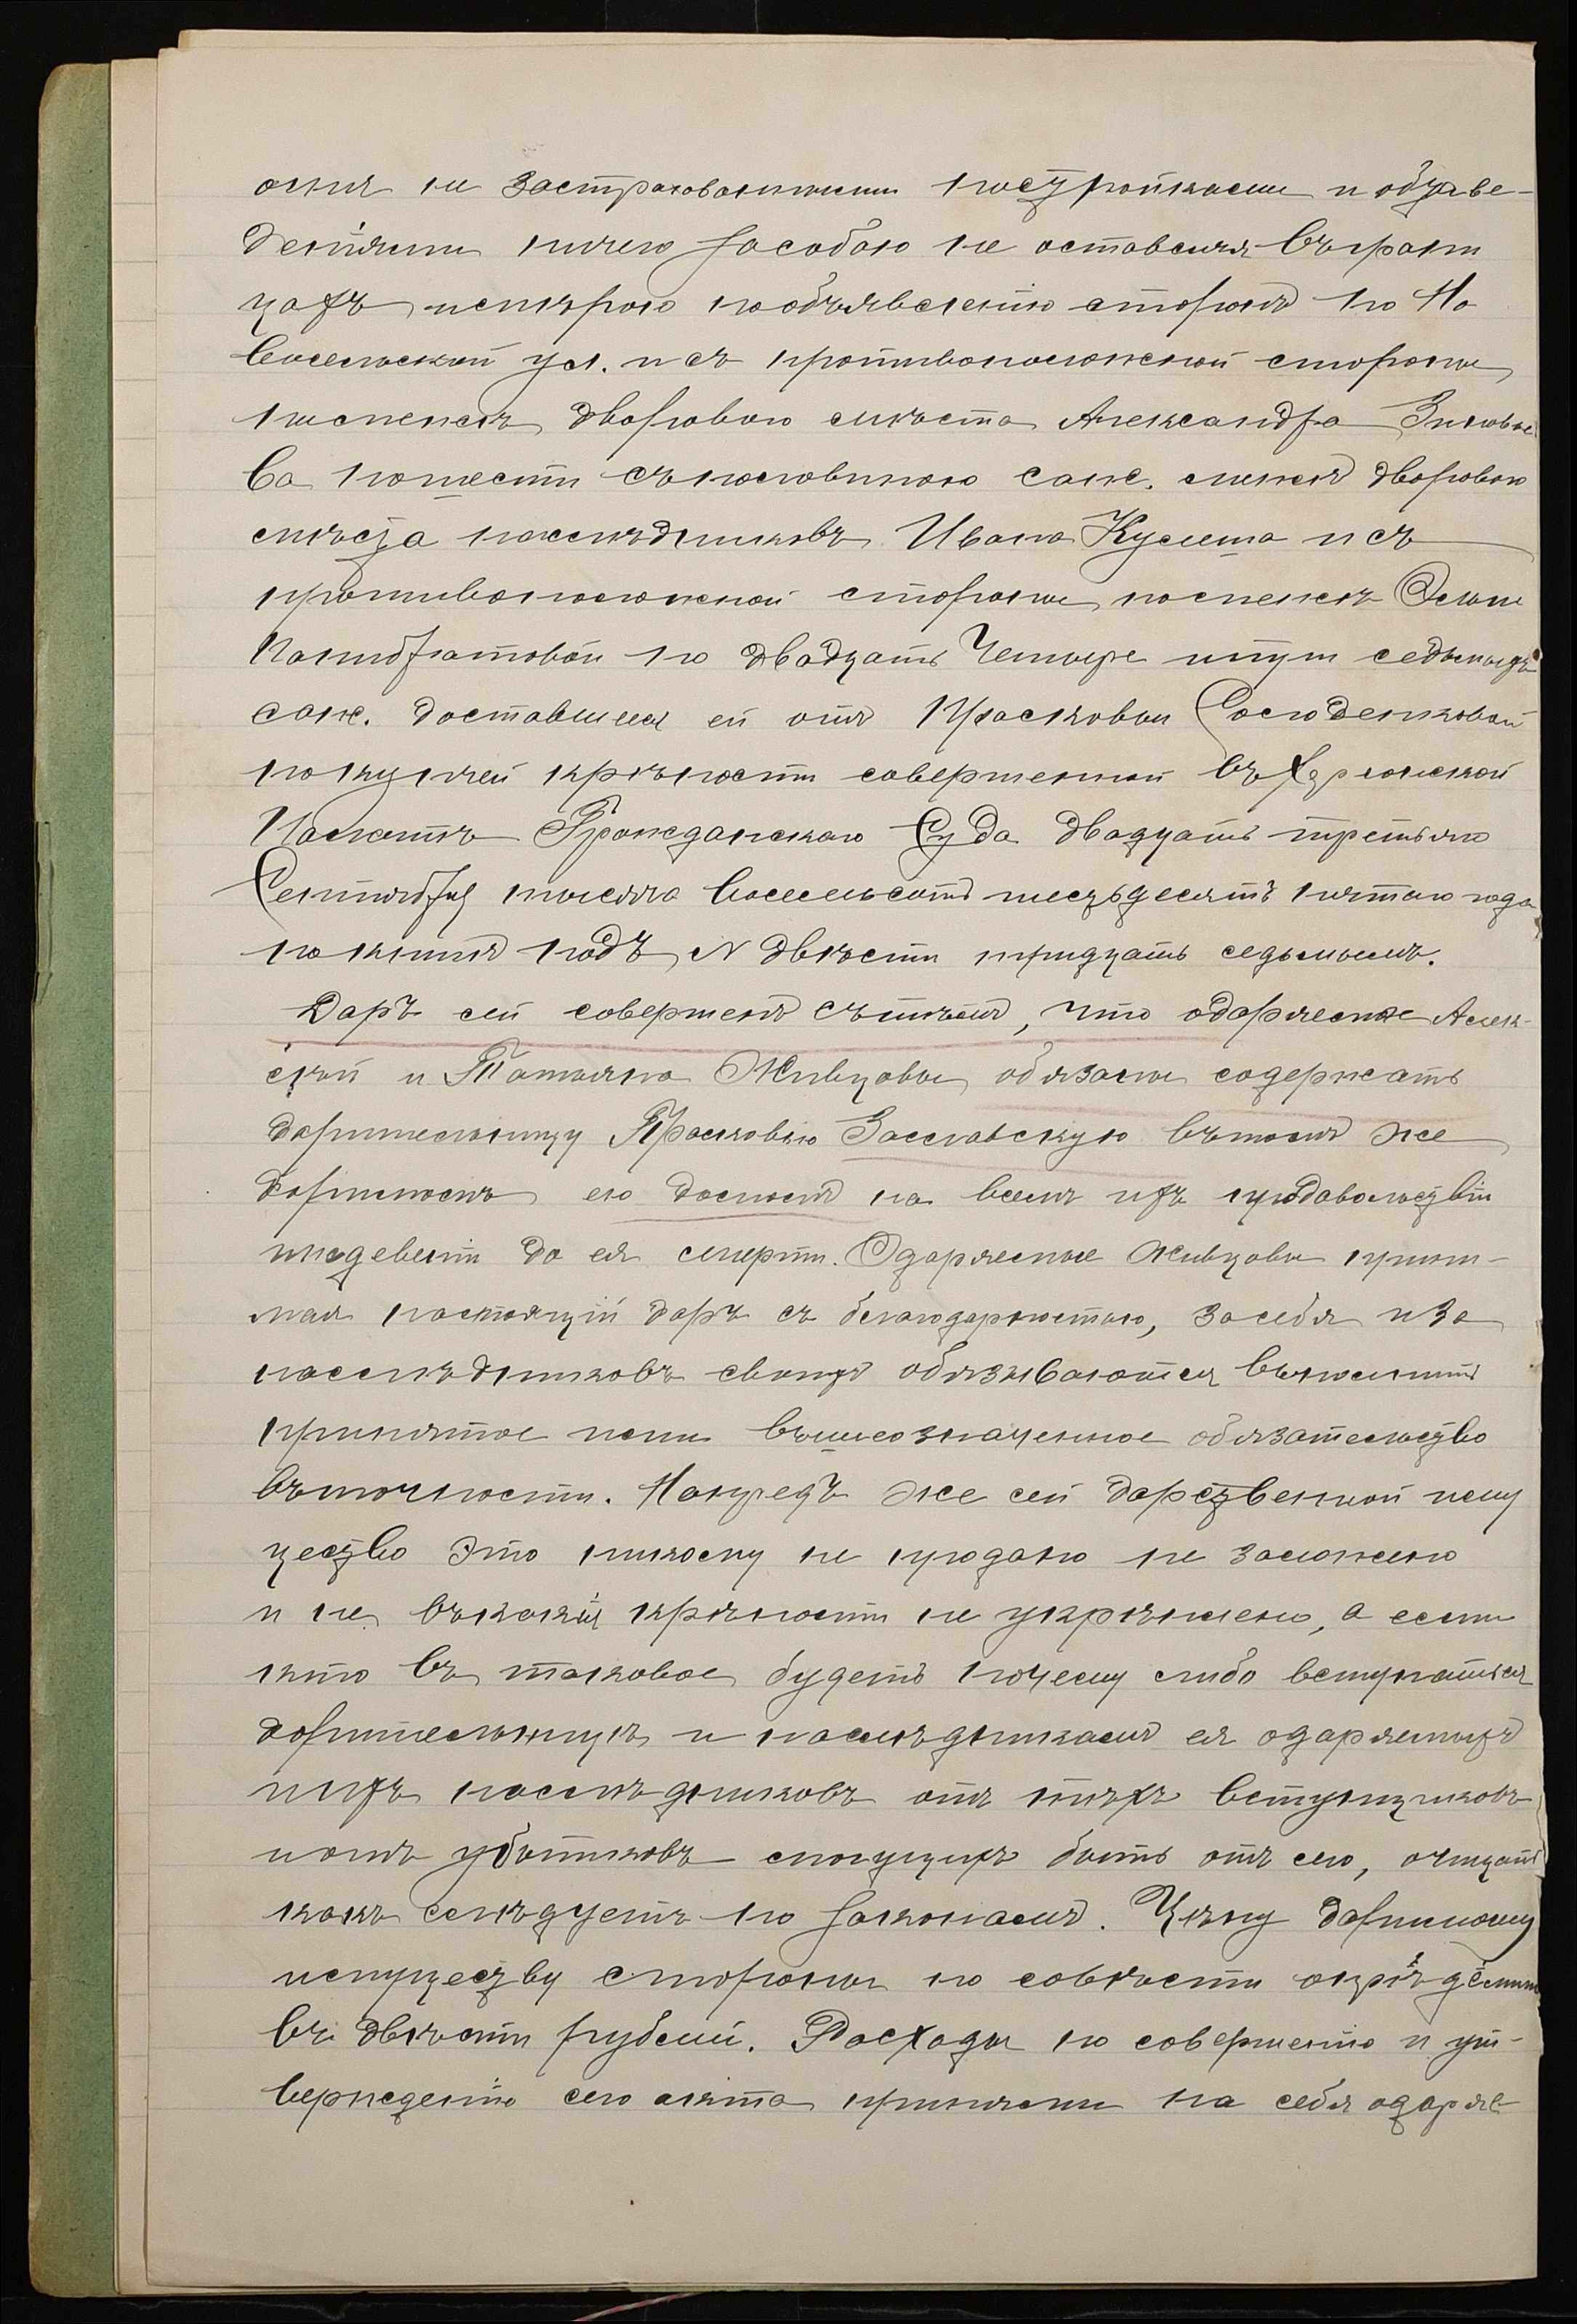 огня не застрахованными постройками и обзаве-
деніями ничего за собою не оставляя въ грани
цахъ, и мѣрою по объявленію сторонъ по Но
восельской ул. и съ противоположной стороны
по смежн. дворового мѣста Александра Зиновье
ва по шести съ половиною саж. межъ дворового
мѣста наслѣдниковъ Ивана и съ
противоположной стороны по смежн.
Панибратовой по двадцать четыре и пяти седьмыхъ
саж. доставшееся ей отъ Прасковьи Солоденковой
по купчей крѣпости совершенной въ Херсонской
Палатѣ Гражданскаго Суда двадцать третьяго
Сентября тысяча восемьсотъ шестьдесятъ пятаго года
по книгѣ подъ N двѣсти тридцать седьмымъ.
Даръ сей совершенъ съ тѣмъ, что одаряемые Алек-
сѣй и Татьяна Живцовы обязаны содержать
дарительницу Прасковью Заславскую въ томъ же
даримомъ ею домѣ на всемъ ихъ продовольствіи
и одеваніи до ея смерти. Одаряемые Живцовы прини-
мая настоящій даръ съ благодарностью, за себя и за
наслѣдниковъ своихъ обязываются выполнить
принятое ими вышеозначенное обязательство
въ точности. Напредъ же сей дарственной иму
щество это никому не продано не заложено
и не въ какія крѣпости не укрѣплено, а если
кто въ таковое будетъ почему либо вступаться
дарительницѣ и наслѣдникамъ ея одаряемыхъ
и ихъ наслѣдниковъ отъ тѣхъ вступщиковъ
и отъ убытковъ могущихъ быть отъ сего, очищать
какъ слѣдуетъ по законамъ. Цѣну даримому
имуществу стороны по совѣсти опрѣдѣлили
въ двѣсти рублей. Расходы по совершенію и ут-
вержденію сего акта приняли на себя одаряе-